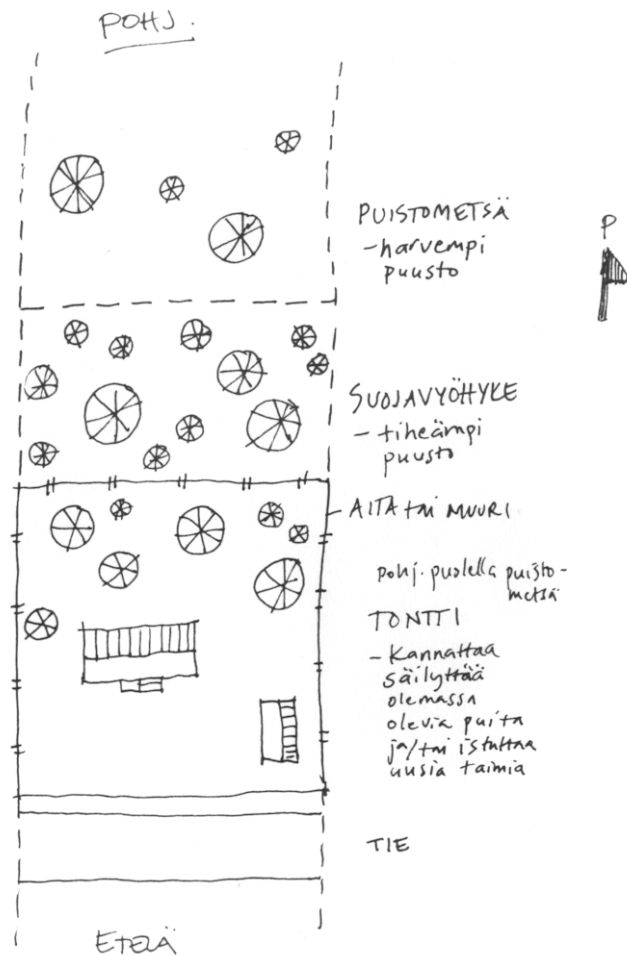 POHJ.
PUISTOMETSÄ
-harvempi
puusto
P
SUOJAVYÖHYKE
- tiheämpi
puusto
AITA tai MUURI
pohj. puolella puisto-
metsä
TONTTI
- Kannattaa
säilyttää
olemassa
olevia puita
ja/tai istuttaa
uusia taimia
TIE
ETELÄ